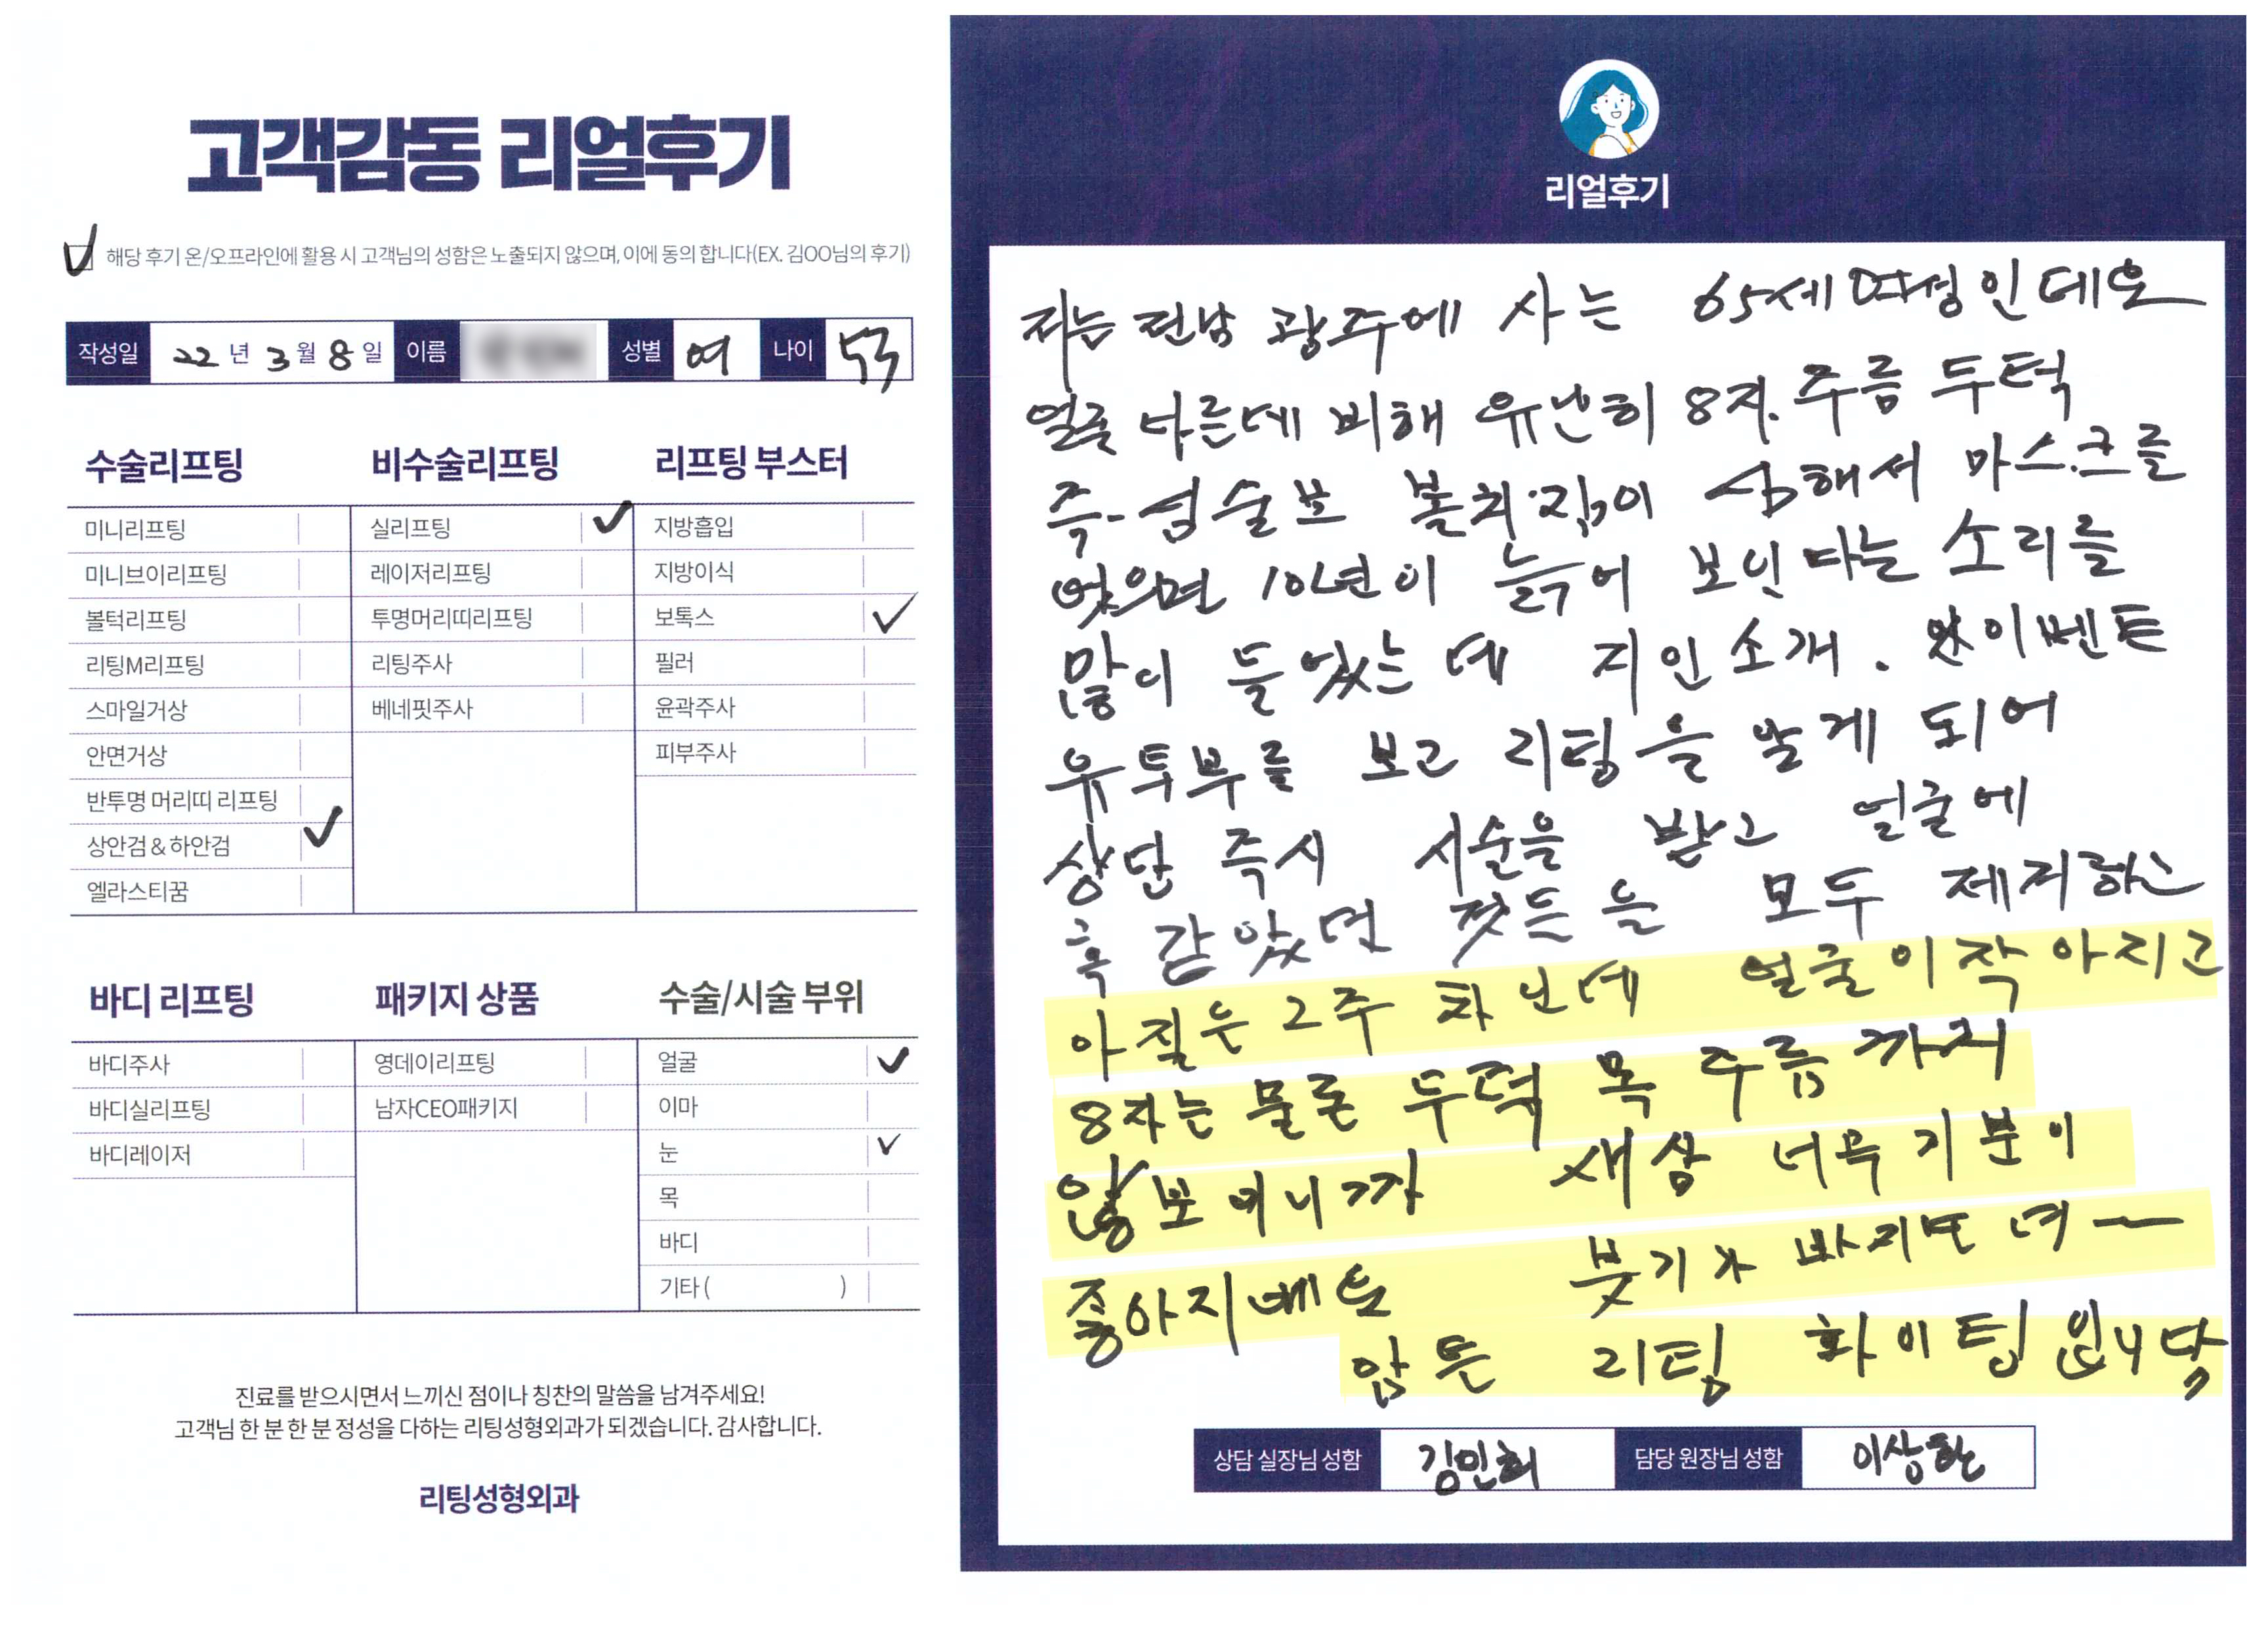 고객감동 리얼후기
해당 후기 온/오프라인에 활용 시 고객님의 성함은 노출되지 않으며, 이에 동의 합니다(EX. 김OO님의 후기)
작성일 22 년 3 월 8 일 이름 성별 여 나이 53
수술리프팅
미니리프팅
미니브이리프팅
볼턱리프팅
리팅M리프팅
스마일거상
안면거상
반투명 머리띠 리프팅
상안검 & 하안검
엘라스티꿈
비수술리프팅
실리프팅
레이저리프팅
투명머리띠리프팅
리팅주사
베네핏주사
리프팅 부스터
지방흡입
지방이식
보톡스
필러
윤곽주사
피부주사
바디 리프팅
바디주사
바디실리프팅
바디레이저
패키지 상품
영데이리프팅
남자CEO패키지
수술/시술 부위
얼굴
이마
눈
목
바디
기타 ( )
진료를 받으시면서 느끼신 점이나 칭찬의 말씀을 남겨주세요!
고객님 한 분 한 분 정성을 다하는 리팅성형외과가 되겠습니다. 감사합니다.
리팅성형외과
리얼후기
저는 전남 광주에 사는 65세 여성인데요
얼굴 다른데 비해 유난히 8자. 주름 두턱
심술보 볼처짐이 심해서 마스크를
벗으면 10년이 늙어 보인다는 소리를
많이 들었는데 지인소개. 이벤트
유투부를 보고 리팅을 알게 되어
상담 즉시 시술을 받고 얼굴에
혹 같았던 것든을 모두 제거하고
아직은 2주 차 인데 얼굴이 작아지고
8자는 물론 두턱 목 주름 까지
않보이니까 새삼 너무 기분이
좋아지네요 붓기가 빠지면 더 ~
암튼 리팅 화이팅 입니당
상담 실장님 성함 김민희 담당 원장님 성함 이상환